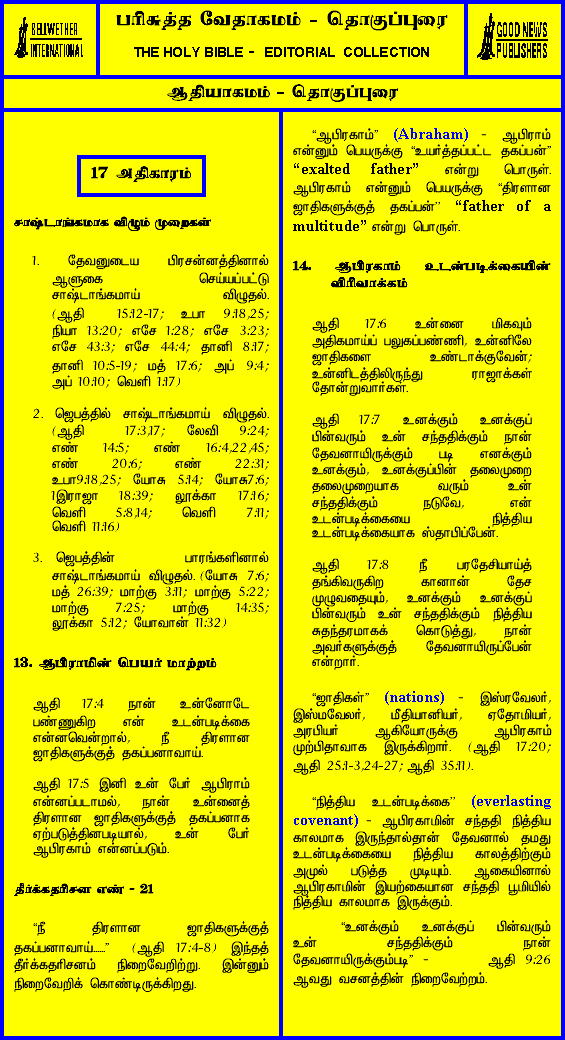 BELLWETHER
INTERNATIONAL
பரிசுத்த வேதாகமம் - தொகுப்புரை
THE HOLY BIBLE - EDITORIAL COLLECTION
GOOD NEWS
PUBLISHERS
ஆதியாகமம் - தொகுப்புரை
17 அதிகாரம்
சாஷ்டாங்கமாக விழும் முறைகள்
1. தேவனுடைய பிரசன்னத்தினால்
ஆளுகை செய்யப்பட்டு
சாஷ்டாங்கமாய் விழுதல்.
(ஆதி 15:12-17; உபா 9:18,25;
நியா 13:20; எசே 1:28; எசே 3:23;
எசே 43:3; எசே 44:4; தானி 8:17;
தானி 10:5-19; மத் 17:6; அப் 9:4;
அப் 10:10; வெளி 1:17)
2. ஜெபத்தில் சாஷ்டாங்கமாய் விழுதல்.
(ஆதி 17:3,17; லேவி 9:24;
எண் 14:5; எண் 16:4,22,45;
எண் 20:6; எண் 22:31;
உபா9:18,25; யோசு 5:14; யோசு7:6;
1இராஜா 18:39; லூக்கா 17:16;
வெளி 5:8,14; வெளி 7:11;
வெளி 11:16)
3. ஜெபத்தின் பாரங்களினால்
சாஷ்டாங்கமாய் விழுதல். (யோசு 7:6;
மத் 26:39; மாற்கு 3:11; மாற்கு 5:22;
மாற்கு 7:25; மாற்கு 14:35;
லூக்கா 5:12; யோவான் 11:32)
13. ஆபிராமின் பெயர் மாற்றம்
ஆதி 17:4 நான் உன்னோடே
பண்ணுகிற என் உடன்படிக்கை
என்னவென்றால், நீ திரளான
ஜாதிகளுக்குத் தகப்பனாவாய்.
ஆதி 17:5 இனி உன் பேர் ஆபிராம்
என்னப்படாமல், நான் உன்னைத்
திரளான ஜாதிகளுக்குத் தகப்பனாக
ஏற்படுத்தினபடியால், உன் பேர்
ஆபிரகாம் என்னப்படும்.
தீர்க்கதரிசன எண் - 21
"நீ திரளான ஜாதிகளுக்குத்
தகப்பனாவாய்....." (ஆதி 17:4-8) இந்தத்
தீர்க்கதரிசனம் நிறைவேறிற்று. இன்னும்
நிறைவேறிக் கொண்டிருக்கிறது.
"ஆபிரகாம்" (Abraham) - ஆபிராம்
என்னும் பெயருக்கு "உயர்த்தப்பட்ட தகப்பன்"
"exalted father" என்று பொருள்.
ஆபிரகாம் என்னும் பெயருக்கு "திரளான
ஜாதிகளுக்குத் தகப்பன்" "father of a
multitude" என்று பொருள்.
14. ஆபிரகாம் உடன்படிக்கையின்
விரிவாக்கம்
ஆதி 17:6 உன்னை மிகவும்
அதிகமாய்ப் பலுகப்பண்ணி, உன்னிலே
ஜாதிகளை உண்டாக்குவேன்;
உன்னிடத்திலிருந்து ராஜாக்கள்
தோன்றுவார்கள்.
ஆதி 17:7 உனக்கும் உனக்குப்
பின்வரும் உன் சந்ததிக்கும் நான்
தேவனாயிருக்கும் படி எனக்கும்
உனக்கும், உனக்குப்பின் தலைமுறை
தலைமுறையாக வரும் உன்
சந்ததிக்கும் நடுவே, என்
உடன்படிக்கையை நித்திய
உடன்படிக்கையாக ஸ்தாபிப்பேன்.
ஆதி 17:8 நீ பரதேசியாய்த்
தங்கிவருகிற கானான் தேச
முழுவதையும், உனக்கும் உனக்குப்
பின்வரும் உன் சந்ததிக்கும் நித்திய
சுதந்தரமாகக் கொடுத்து, நான்
அவர்களுக்குத் தேவனாயிருப்பேன்
என்றார்.
"ஜாதிகள்" (nations) - இஸ்ரவேலர்,
இஸ்மவேலர், மீதியானியர், ஏதோமியர்,
அரபியர் ஆகியோருக்கு ஆபிரகாம்
முற்பிதாவாக இருக்கிறார். (ஆதி 17:20;
ஆதி 25:1-3,24-27; ஆதி 35:11).
"நித்திய உடன்படிக்கை" (everlasting
covenant) - ஆபிரகாமின் சந்ததி நித்திய
காலமாக இருந்தால்தான் தேவனால் தமது
உடன்படிக்கையை நித்திய காலத்திற்கும்
அமுல் படுத்த முடியும். ஆகையினால்
ஆபிரகாமின் இயற்கையான சந்ததி பூமியில்
நித்திய காலமாக இருக்கும்.
"உனக்கும் உனக்குப் பின்வரும்
உன் சந்ததிக்கும் நான்
தேவனாயிருக்கும்படி" - ஆதி 9:26
ஆவது வசனத்தின் நிறைவேற்றம்.